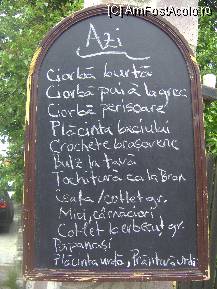 (C) AmFostAcolo.ro
Azi
Ciorbă burtă
Ciorbă pui à la grec
Ciorbă perisoare
Plăcinta baciului
Crochete brasovene
Bulz la tavă
Tochitură ca la Bran
Ceafa/cotlet gr.
Mici, cârnăciori,
Cotlet berbecut gr.
Papanasi
Plăcinta urdă,